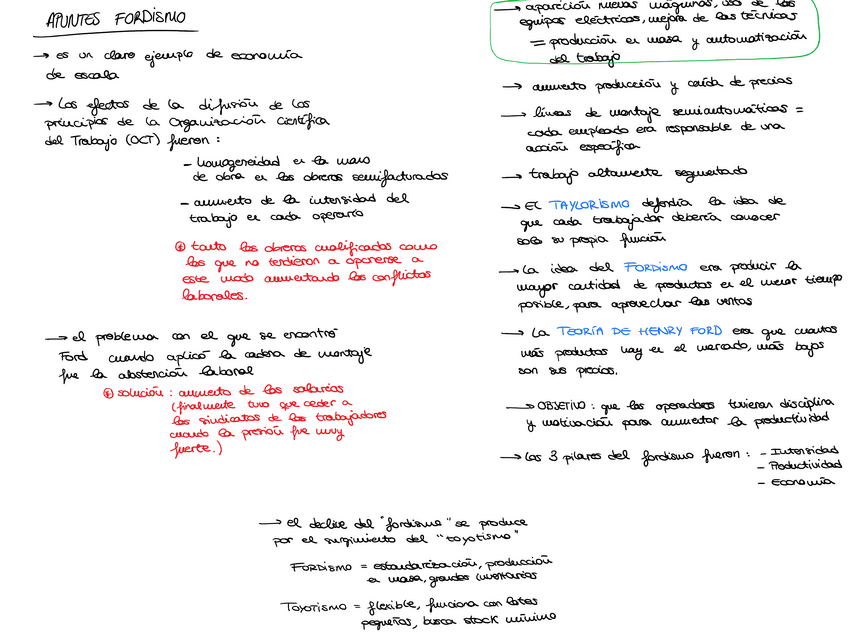 APUNTES FORDISMO
→ es un claro ejemplo de economía
de escala
→ Los efectos de la difusión de los
principios de la Organización Científica
del Trabajo (OCT) fueron :
- homogeneidad en la mano
de obra en los obreros semifacturados
- aumento de la intensidad del
trabajo en cada operario
* tanto los obreros cualificados como
los que no tendieron a oponerse a
este modo aumentando los conflictos
laborales.
→ el problema con el que se encontró
Ford cuando aplicó la cadena de montaje
fue la abstención laboral
* solución : aumento de los salarios
(finalmente tuvo que ceder a
los sindicatos de los trabajadores
cuando la presión fue muy
fuerte.)
→ aparición nuevas máquinas, uso de los
equipos eléctricos, mejora de las técnicas
= producción en masa y automatización
del trabajo
→ aumento producción y caída de precios
→ líneas de montaje semiautomáticas =
cada empleado era responsable de una
acción específica
→ trabajo altamente segmentado
→ El TAYLORISMO defendía la idea de
que cada trabajador debería conocer
solo su propia función
→ La idea del FORDISMO era producir la
mayor cantidad de productos en el menor tiempo
posible, para aprovechar las ventas
→ La TEORÍA DE HENRY FORD era que cuantos
más productos hay en el mercado, más bajos
son sus precios.
→ OBJETIVO : que los operadores tuvieran disciplina
y motivación para aumentar la productividad
→ Los 3 pilares del fordismo fueron : - Intensidad
- Productividad
- Economía
→ el declive del "fordismo" se produce
por el surgimiento del "toyotismo"
FORDISMO = estandarización, producción
en masa, grandes inventarios
TOYOTISMO = flexible, funciona con lotes
pequeños, busca stock mínimo